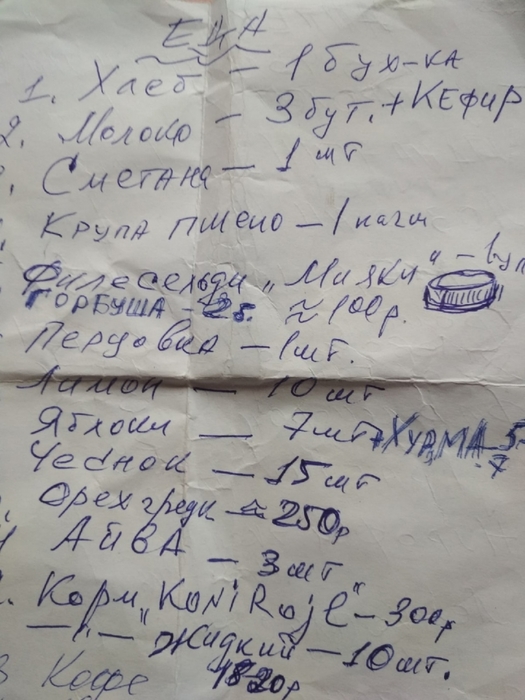 ЕДА
1. Хлеб - 1 бух-ка
2. Молоко - 3 бут. + КЕФИР
Сметана - 1 шт
Крупа пшено - 1 пачк
Филе сельди "Маяки" - 1 уп
ГОРБУША - 2б. ≈ 100р.
Перцовка - 1 шт.
Лимон - 10 шт
Яблоки - 7 шт + ХУРМА 5-7
Чеснок - 15 шт
Орех грецк ≈ 250р
АЙВА - 3 шт
Корм "KoNi Rojl" - 300р
—"— Жидкий - 10 шт.
Кофе 18-20р